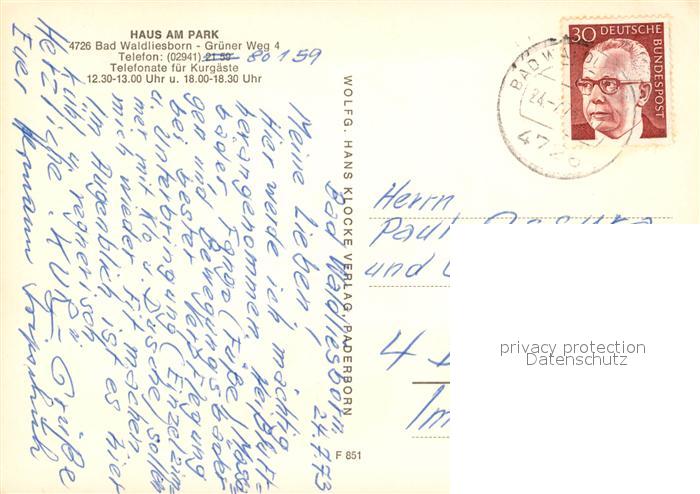 HAUS AM PARK
4726 Bad Waldliesborn - Grüner Weg 4
Telefon: (02941) 21 59 80 159
Telefonate für Kurgäste
12.30-13.00 Uhr u. 18.00-18.30 Uhr
Bad Waldliesborn
24.7.73
Meine Lieben!
Hier werde ich mächtig
herangenommen. Heißluft-
bäder, Fango (Füße), Massa-
gen und Bewegungsbäder
bei bester Verpflegung
u. Unterbringung (Einzelzim-
mer mit Klo u. Dusche) sollen
mich wieder fit machen.
Im Augenblick ist es hier
kühl u. regnerisch
Herzliche Kur-Grüße
Euer Hermann
WOLFG. HANS KLOCKE VERLAG, PADERBORN
F 851
30 DEUTSCHE BUNDESPOST
BAD WALD
24.-7.
4726
Herrn
Paul
und
4
Im
privacy protection
Datenschutz